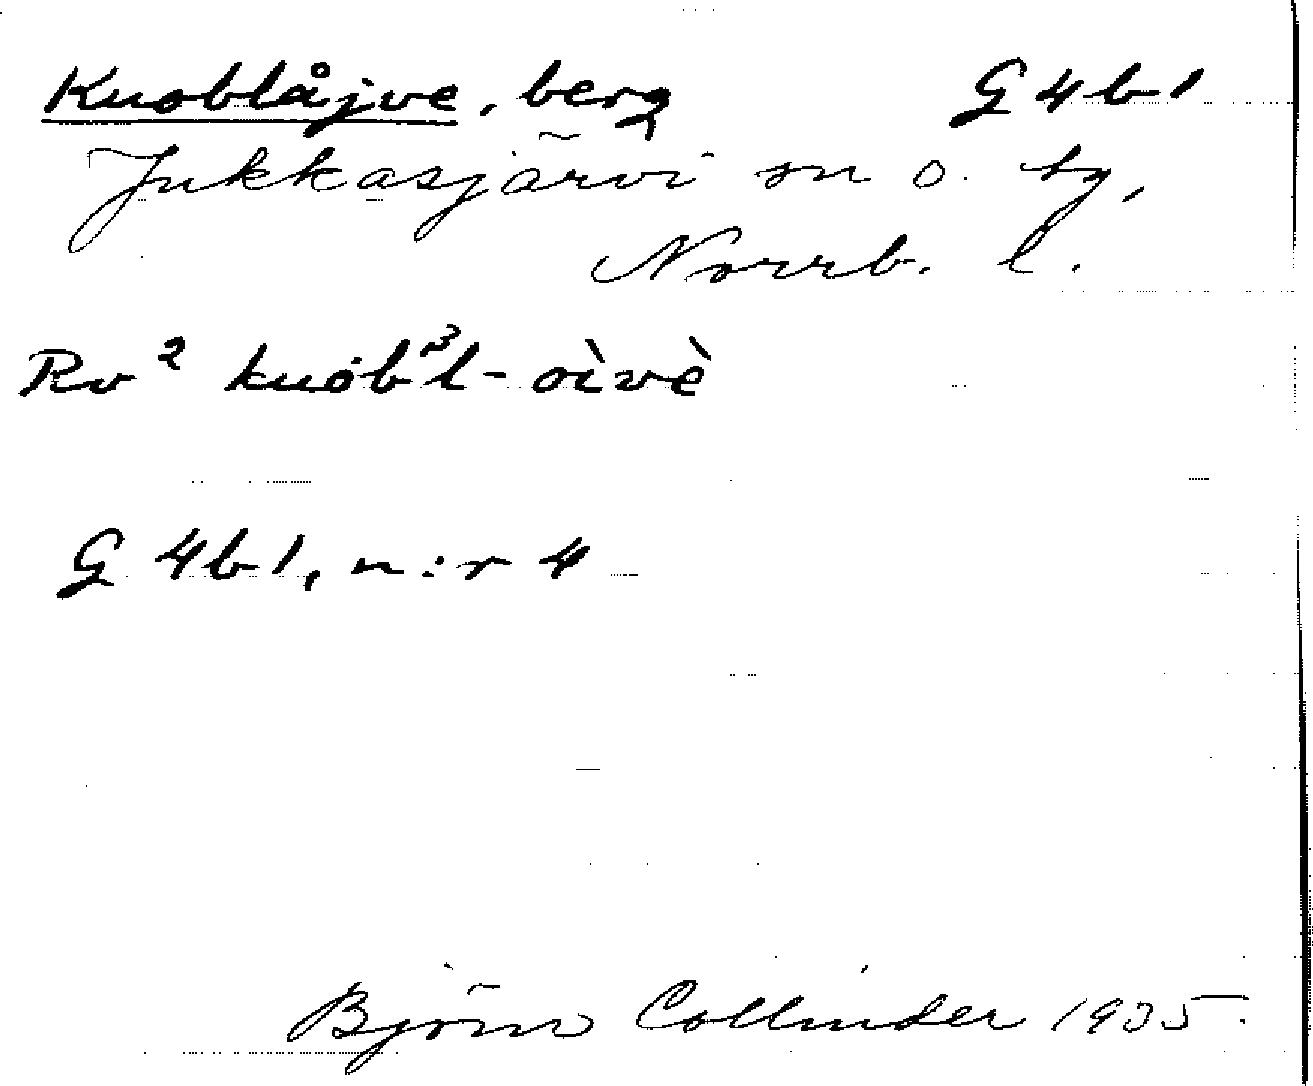 Kuoblåjve, berg G4b1
Jukkasjärvi sn o. tg,
Norrb. l.
Rv² kuȯb³l-oìvè
G 4b1, n:r 4
Björn Collinder 1935.